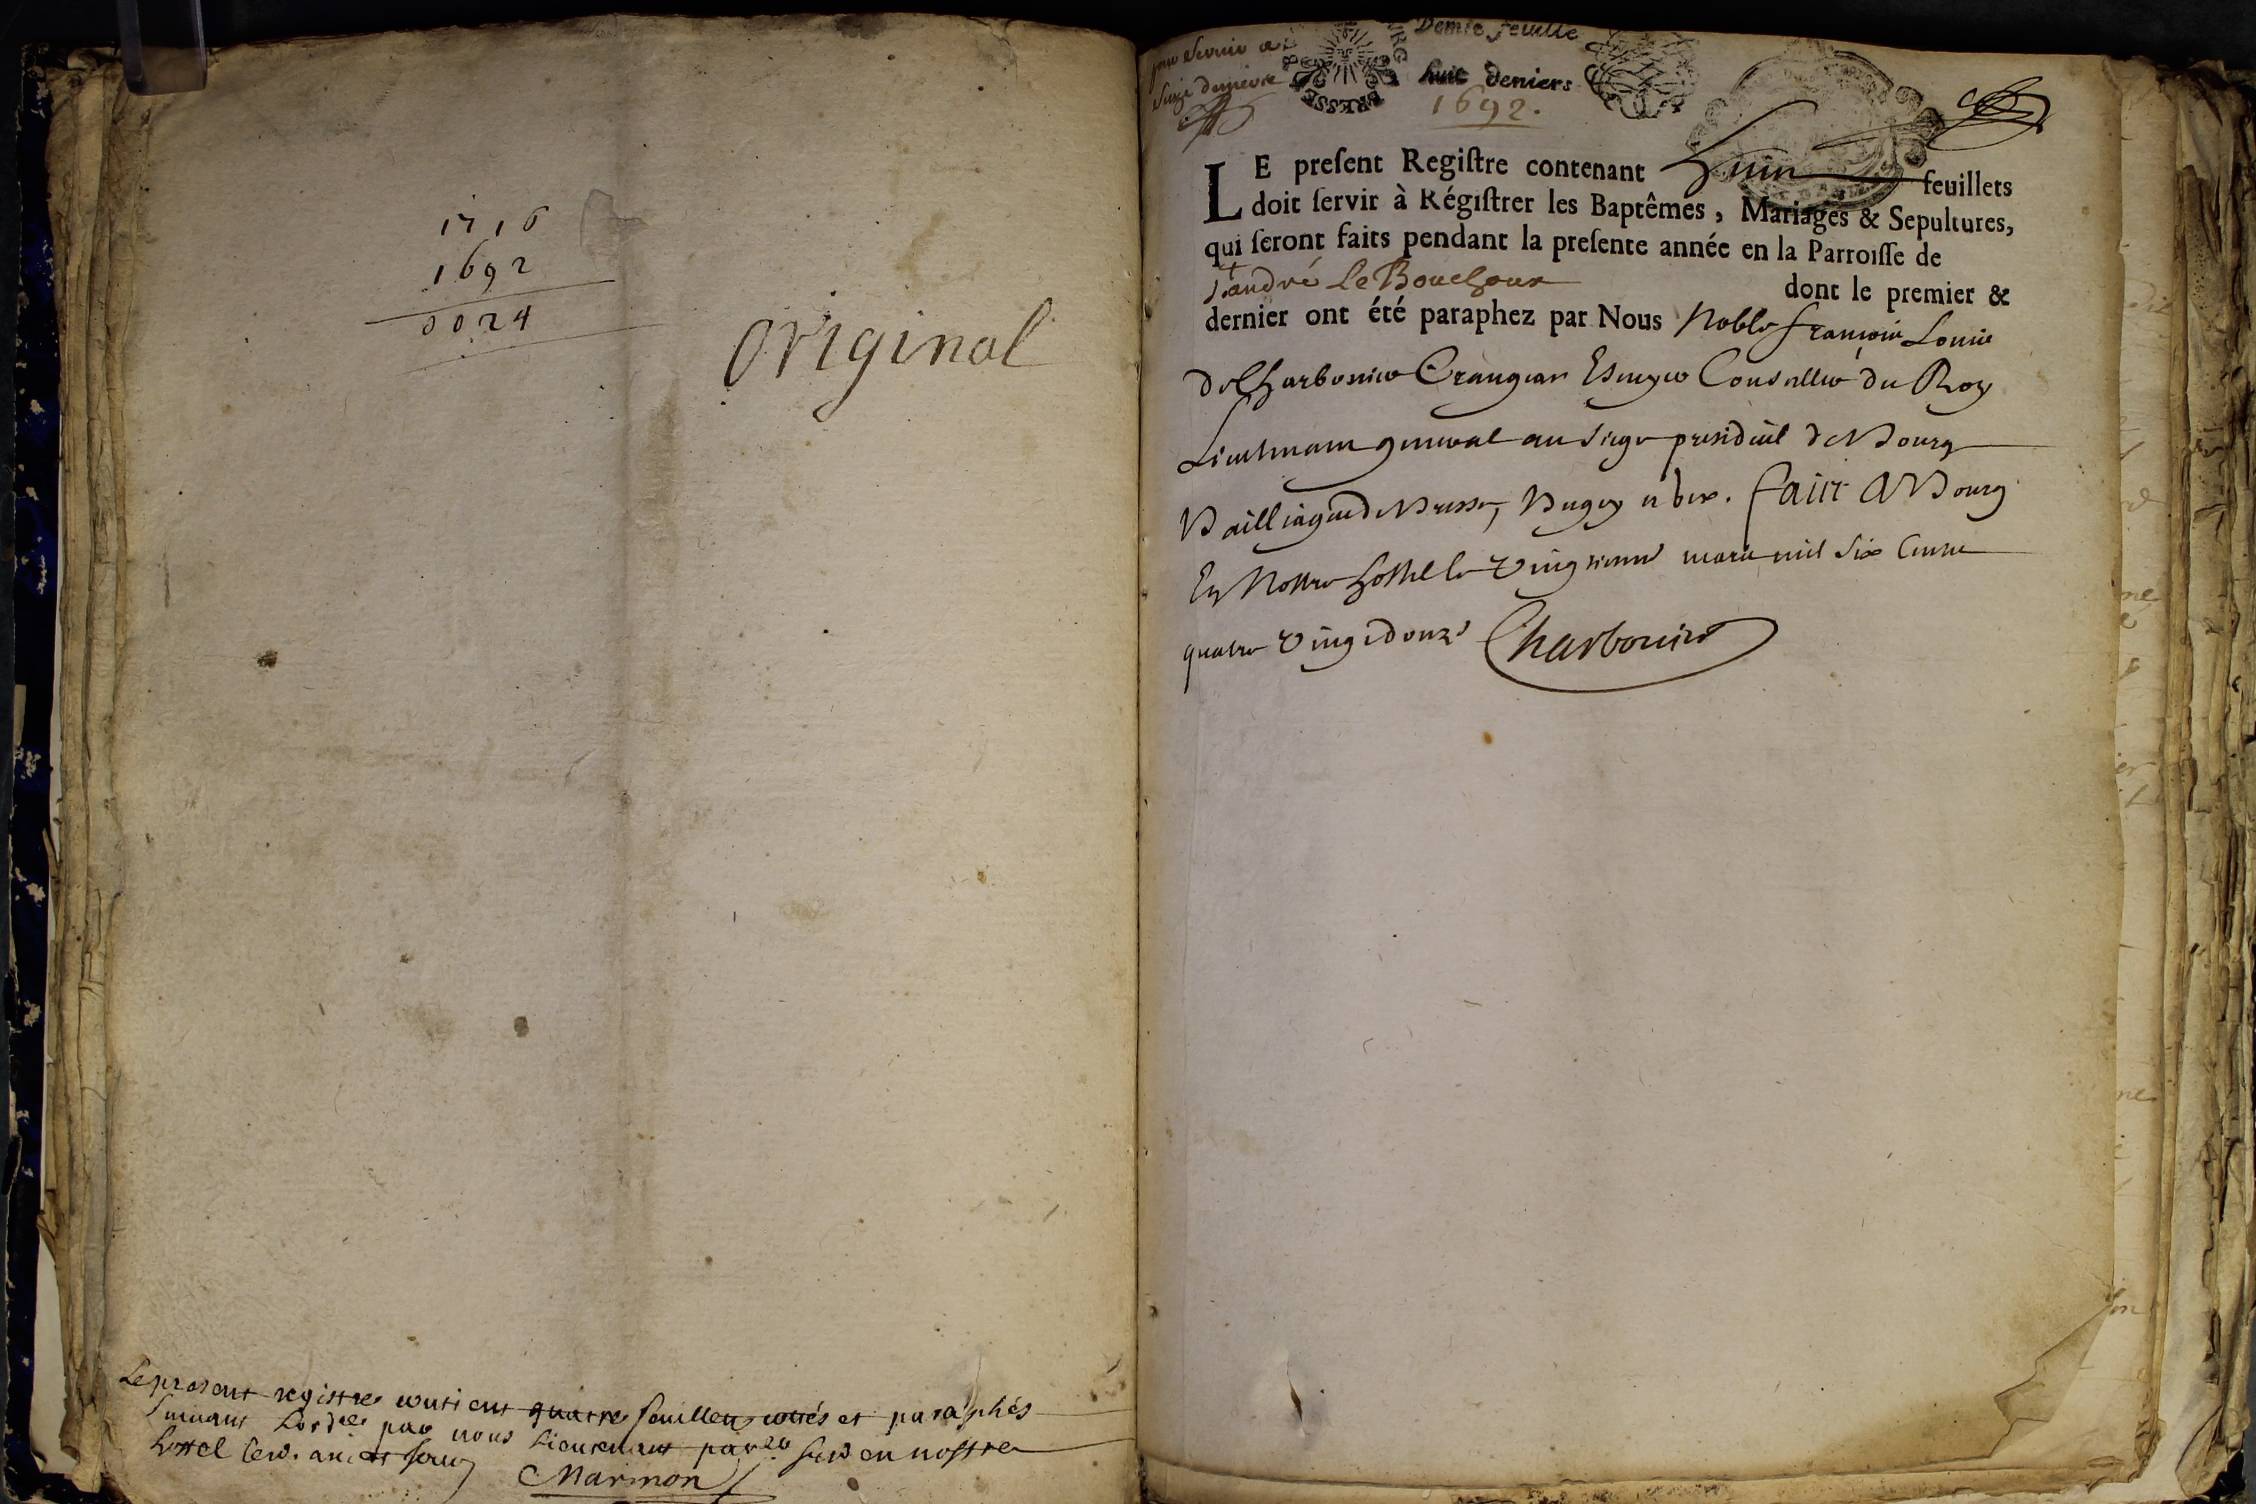 1716
1692
0024
original
Le present registre contient quatre feuillets cottés et paraphés
suivant par nous Lieutenant
hostel en nostre
Marmon
Demie feuille
huit deniers
1692.
BRESSE
LE preſent Regiſtre contenant huit feuillets
doit ſervir à Régiſtrer les Baptêmes, Mariages & Sepultures,
qui ſeront faits pendant la preſente année en la Parroiſſe de
St andré Le Bouchoux dont le premier &
dernier ont été paraphez par Nous Noble François Louis
de Charbonnier Crangeac Escuyer Conseiller du Roy
Lieutenant general au siege presidial de Bourg
Bailliage de Bresse, Bugey Faict A Bourg
En Nostre hostel le mars mil six Cent
quatre vingt douze Charbonnier